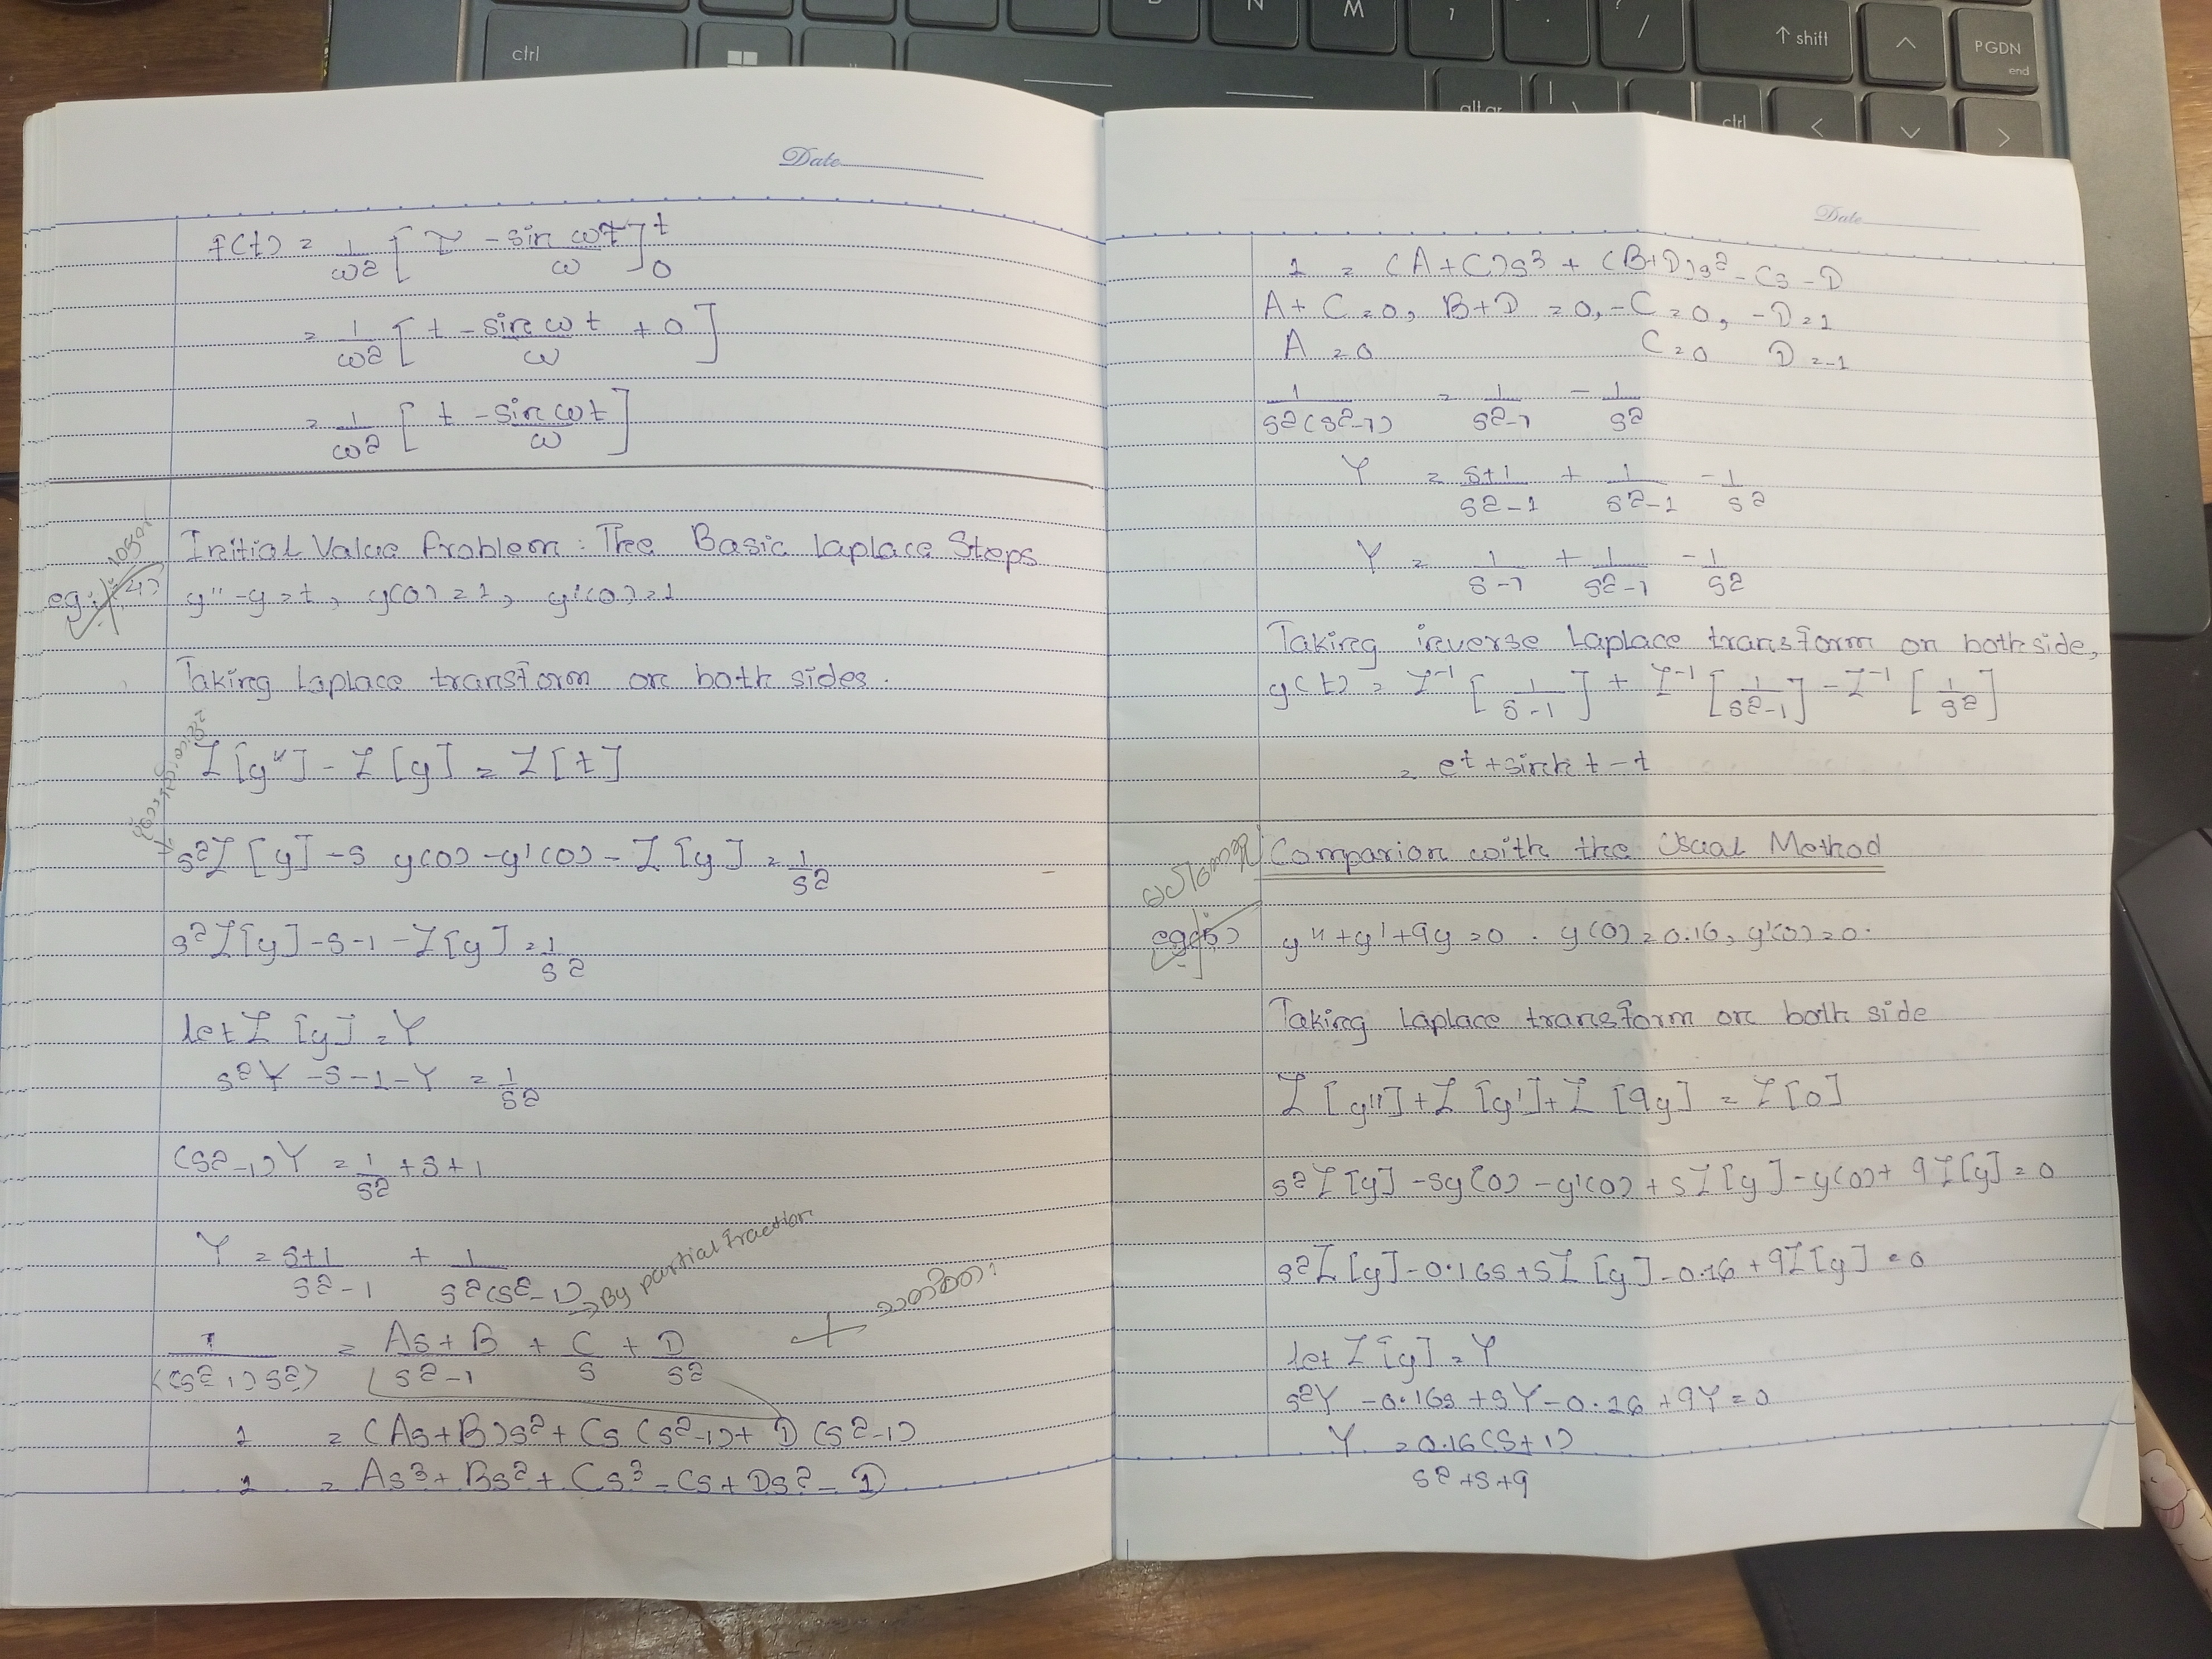 ctrl
N
M
/
↑ shift
PGDN
end
alt gr
ctrl
Date
f(t) = 1/ω² [τ - sin ωτ/ω]₀ᵗ
= 1/ω² [t - sin ωt/ω + 0]
= 1/ω² [t - sin ωt/ω]
Initial Value Problem: The Basic Laplace Steps
eg: 4) y'' - y = t, y(0) = 1, y'(0) = 1
Taking Laplace transform on both sides.
ℒ[y''] - ℒ[y] = ℒ[t]
s²ℒ[y] - s y(0) - y'(0) - ℒ[y] = 1/s²
s²ℒ[y] - s - 1 - ℒ[y] = 1/s²
let ℒ[y] = Y
s²Y - s - 1 - Y = 1/s²
(s² - 1)Y = 1/s² + s + 1
Y = s+1/s²-1 + 1/s²(s²-1) → By partial fraction
1/((s²-1)s²) = As + B/s²-1 + C/s + D/s²
1 = (As+B)s² + Cs(s²-1) + D(s²-1)
1 = As³ + Bs² + Cs³ - Cs + Ds² - D
Date
1 = (A+C)s³ + (B+D)s² - Cs - D
A + C = 0, B + D = 0, -C = 0, -D = 1
A = 0 C = 0 D = -1
1/s²(s²-1) = 1/s²-1 - 1/s²
Y = s+1/s²-1 + 1/s²-1 - 1/s²
Y = 1/s-1 + 1/s²-1 - 1/s²
Taking inverse Laplace transform on both side,
y(t) = ℒ⁻¹[1/s-1] + ℒ⁻¹[1/s²-1] - ℒ⁻¹[1/s²]
= eᵗ + sinh t - t
Comparion with the Usual Method
eg(5) y'' + y' + 9y = 0. y(0) = 0.16, y'(0) = 0.
Taking Laplace transform on both side
ℒ[y''] + ℒ[y'] + ℒ[9y] = ℒ[0]
s²ℒ[y] - sy(0) - y'(0) + sℒ[y] - y(0) + 9ℒ[y] = 0
s²ℒ[y] - 0.16s + sℒ[y] - 0.16 + 9ℒ[y] = 0
let ℒ[y] = Y
s²Y - 0.16s + sY - 0.16 + 9Y = 0
Y = 0.16(s+1)/s²+s+9